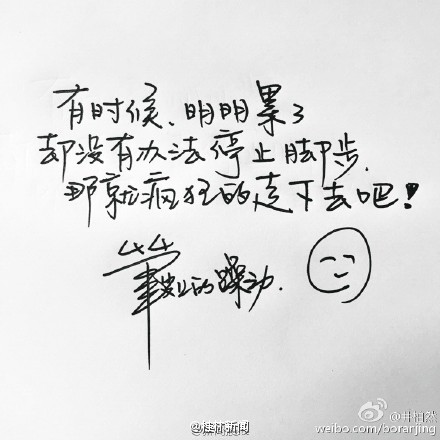 有时候、明明累了
却没有办法停止脚步.
那就疯狂的走下去吧！
的躁动.
@桂林新闻
@井柏然
weibo.com/boranjing